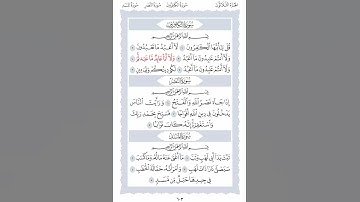 الجزء الثلاثون سورة الكافرون سورة النصر سورة المسد
سُورَةُ الكَافِرُونَ
بِسْمِ اللَّهِ الرَّحْمَٰنِ الرَّحِيمِ
قُلْ يَٰٓأَيُّهَا ٱلْكَٰفِرُونَ ۝ لَآ أَعْبُدُ مَا تَعْبُدُونَ ۝
وَلَآ أَنتُمْ عَٰبِدُونَ مَآ أَعْبُدُ ۝ وَلَآ أَنَا۠ عَابِدٌ مَّا عَبَدتُّمْ ۝
وَلَآ أَنتُمْ عَٰبِدُونَ مَآ أَعْبُدُ ۝ لَكُمْ دِينُكُمْ وَلِىَ دِينِ ۝
سُورَةُ النَّصْرِ
بِسْمِ اللَّهِ الرَّحْمَٰنِ الرَّحِيمِ
إِذَا جَآءَ نَصْرُ ٱللَّهِ وَٱلْفَتْحُ ۝ وَرَأَيْتَ ٱلنَّاسَ
يَدْخُلُونَ فِى دِينِ ٱللَّهِ أَفْوَاجًا ۝ فَسَبِّحْ بِحَمْدِ رَبِّكَ
وَٱسْتَغْفِرْهُ إِنَّهُۥ كَانَ تَوَّابًۢا ۝
سُورَةُ المَسَدِ
بِسْمِ اللَّهِ الرَّحْمَٰنِ الرَّحِيمِ
تَبَّتْ يَدَآ أَبِى لَهَبٍ وَتَبَّ ۝ مَآ أَغْنَىٰ عَنْهُ مَالُهُۥ وَمَا كَسَبَ ۝
سَيَصْلَىٰ نَارًا ذَاتَ لَهَبٍ ۝ وَٱمْرَأَتُهُۥ حَمَّالَةَ ٱلْحَطَبِ ۝
فِى جِيدِهَا حَبْلٌ مِّن مَّسَدٍۭ ۝
٦٠٣